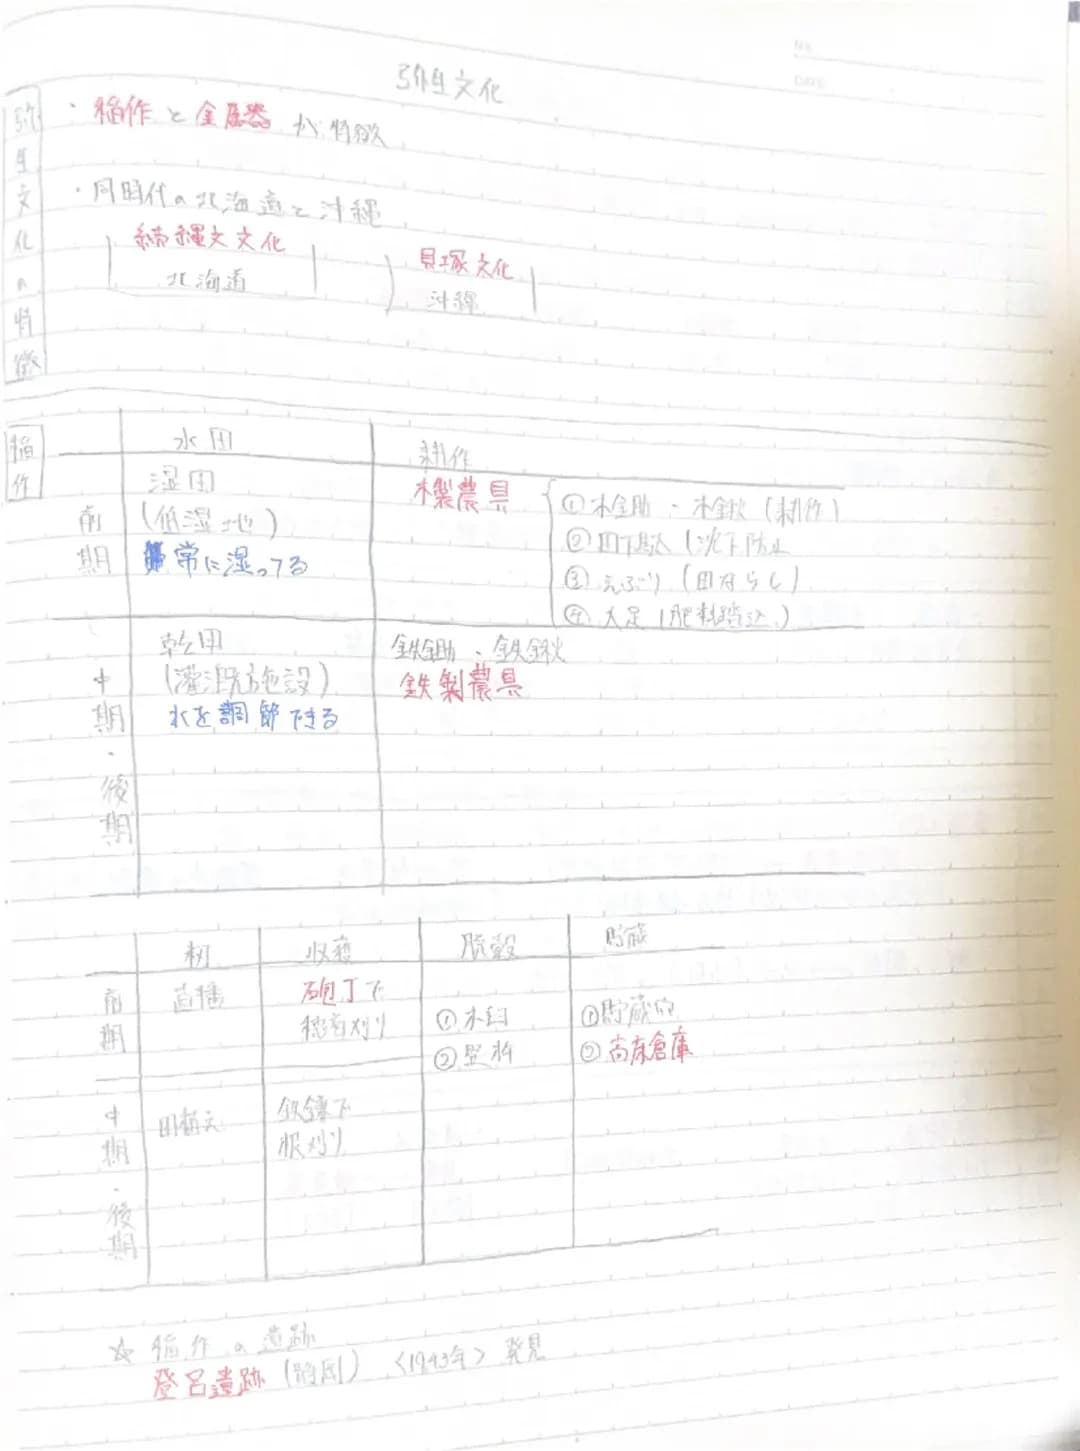 弥生文化
弥生文化の特徴
・稲作と金属器が特徴
・同時代の北海道と沖縄
続縄文文化
北海道
貝塚文化
沖縄
稲作
水田
耕作
前期
湿田
(低湿地)
常に湿ってる
木製農具
①木鋤・木鍬(耕作)
②田下駄(沈下防止
③えぶり(田ならし)
④大足(肥料踏込)
中期・後期
乾田
(灌漑施設)
水を調節できる
鉄鋤・鉄鍬
鉄製農具
籾
収穫
脱穀
貯蔵
前期
直播
石包丁で
穂首刈り
①木臼
②竪杵
①貯蔵穴
②高床倉庫
中期・後期
田植え
鉄鎌で
根刈り
☆稲作の遺跡
登呂遺跡(静岡)〈1943年〉発見
NO.
DATE